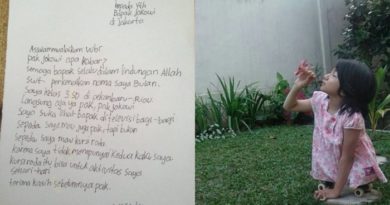 kepada Yth
Bapak Jokowi
di Jakarta
Assalamualaikum Wbr
Pak Jokowi apa kabar?
Semoga bapak selalu dalam lindungan Allah
Swt. perkenalkan nama saya Bulan.
Saya kelas 3 SD di pekanbaru - Riau
Langsung aja ya pak, pak Jokowi
Saya suka lihat bapak di televisi bagi-bagi
sepeda saya mau juga pak, tapi bukan
sepeda saya mau kursi roda
karena saya tidak mempunyai kedua kaki, supaya
kursi roda itu bisa untuk aktivitas saya
sehari-hari
terima kasih sebelumnya pak.